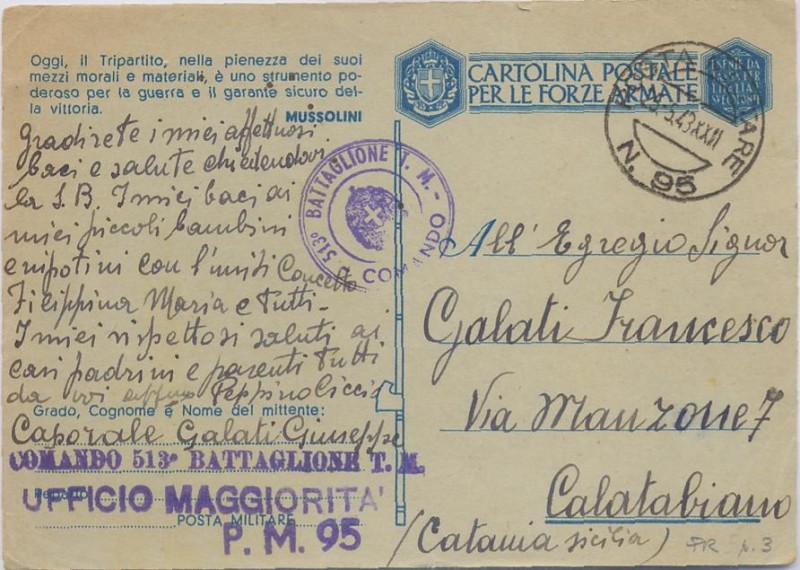 Oggi, il Tripartito, nella pienezza dei suoi
mezzi morali e materiali, è uno strumento po-
deroso per la guerra e il garante sicuro del-
la vittoria.
MUSSOLINI
Gradirete i miei affettuosi
baci e salute chiedendovi
la S.B. I miei baci ai
miei piccoli bambini
e nipotini con l'uniti Concetto
Filippina Maria e tutti-
I miei rispettosi saluti ai
cari padrini e parenti tutti
da voi Peppino Ciccio
Grado, Cognome e Nome del mittente:
Caporale Galati Giuseppe
COMANDO 513° BATTAGLIONE T. M.
Reparto
UFFICIO MAGGIORITA'
POSTA MILITARE
P. M. 95
513° BATTAGLIONE T. M. - COMANDO
CARTOLINA POSTALE
PER LE FORZE ARMATE
POSTA MILITARE
.5.43 XXI
N. 95
All' Egregio Signor
Galati Francesco
Via Manzone 7
Calatabiano
(Catania sicilia)
N. 3